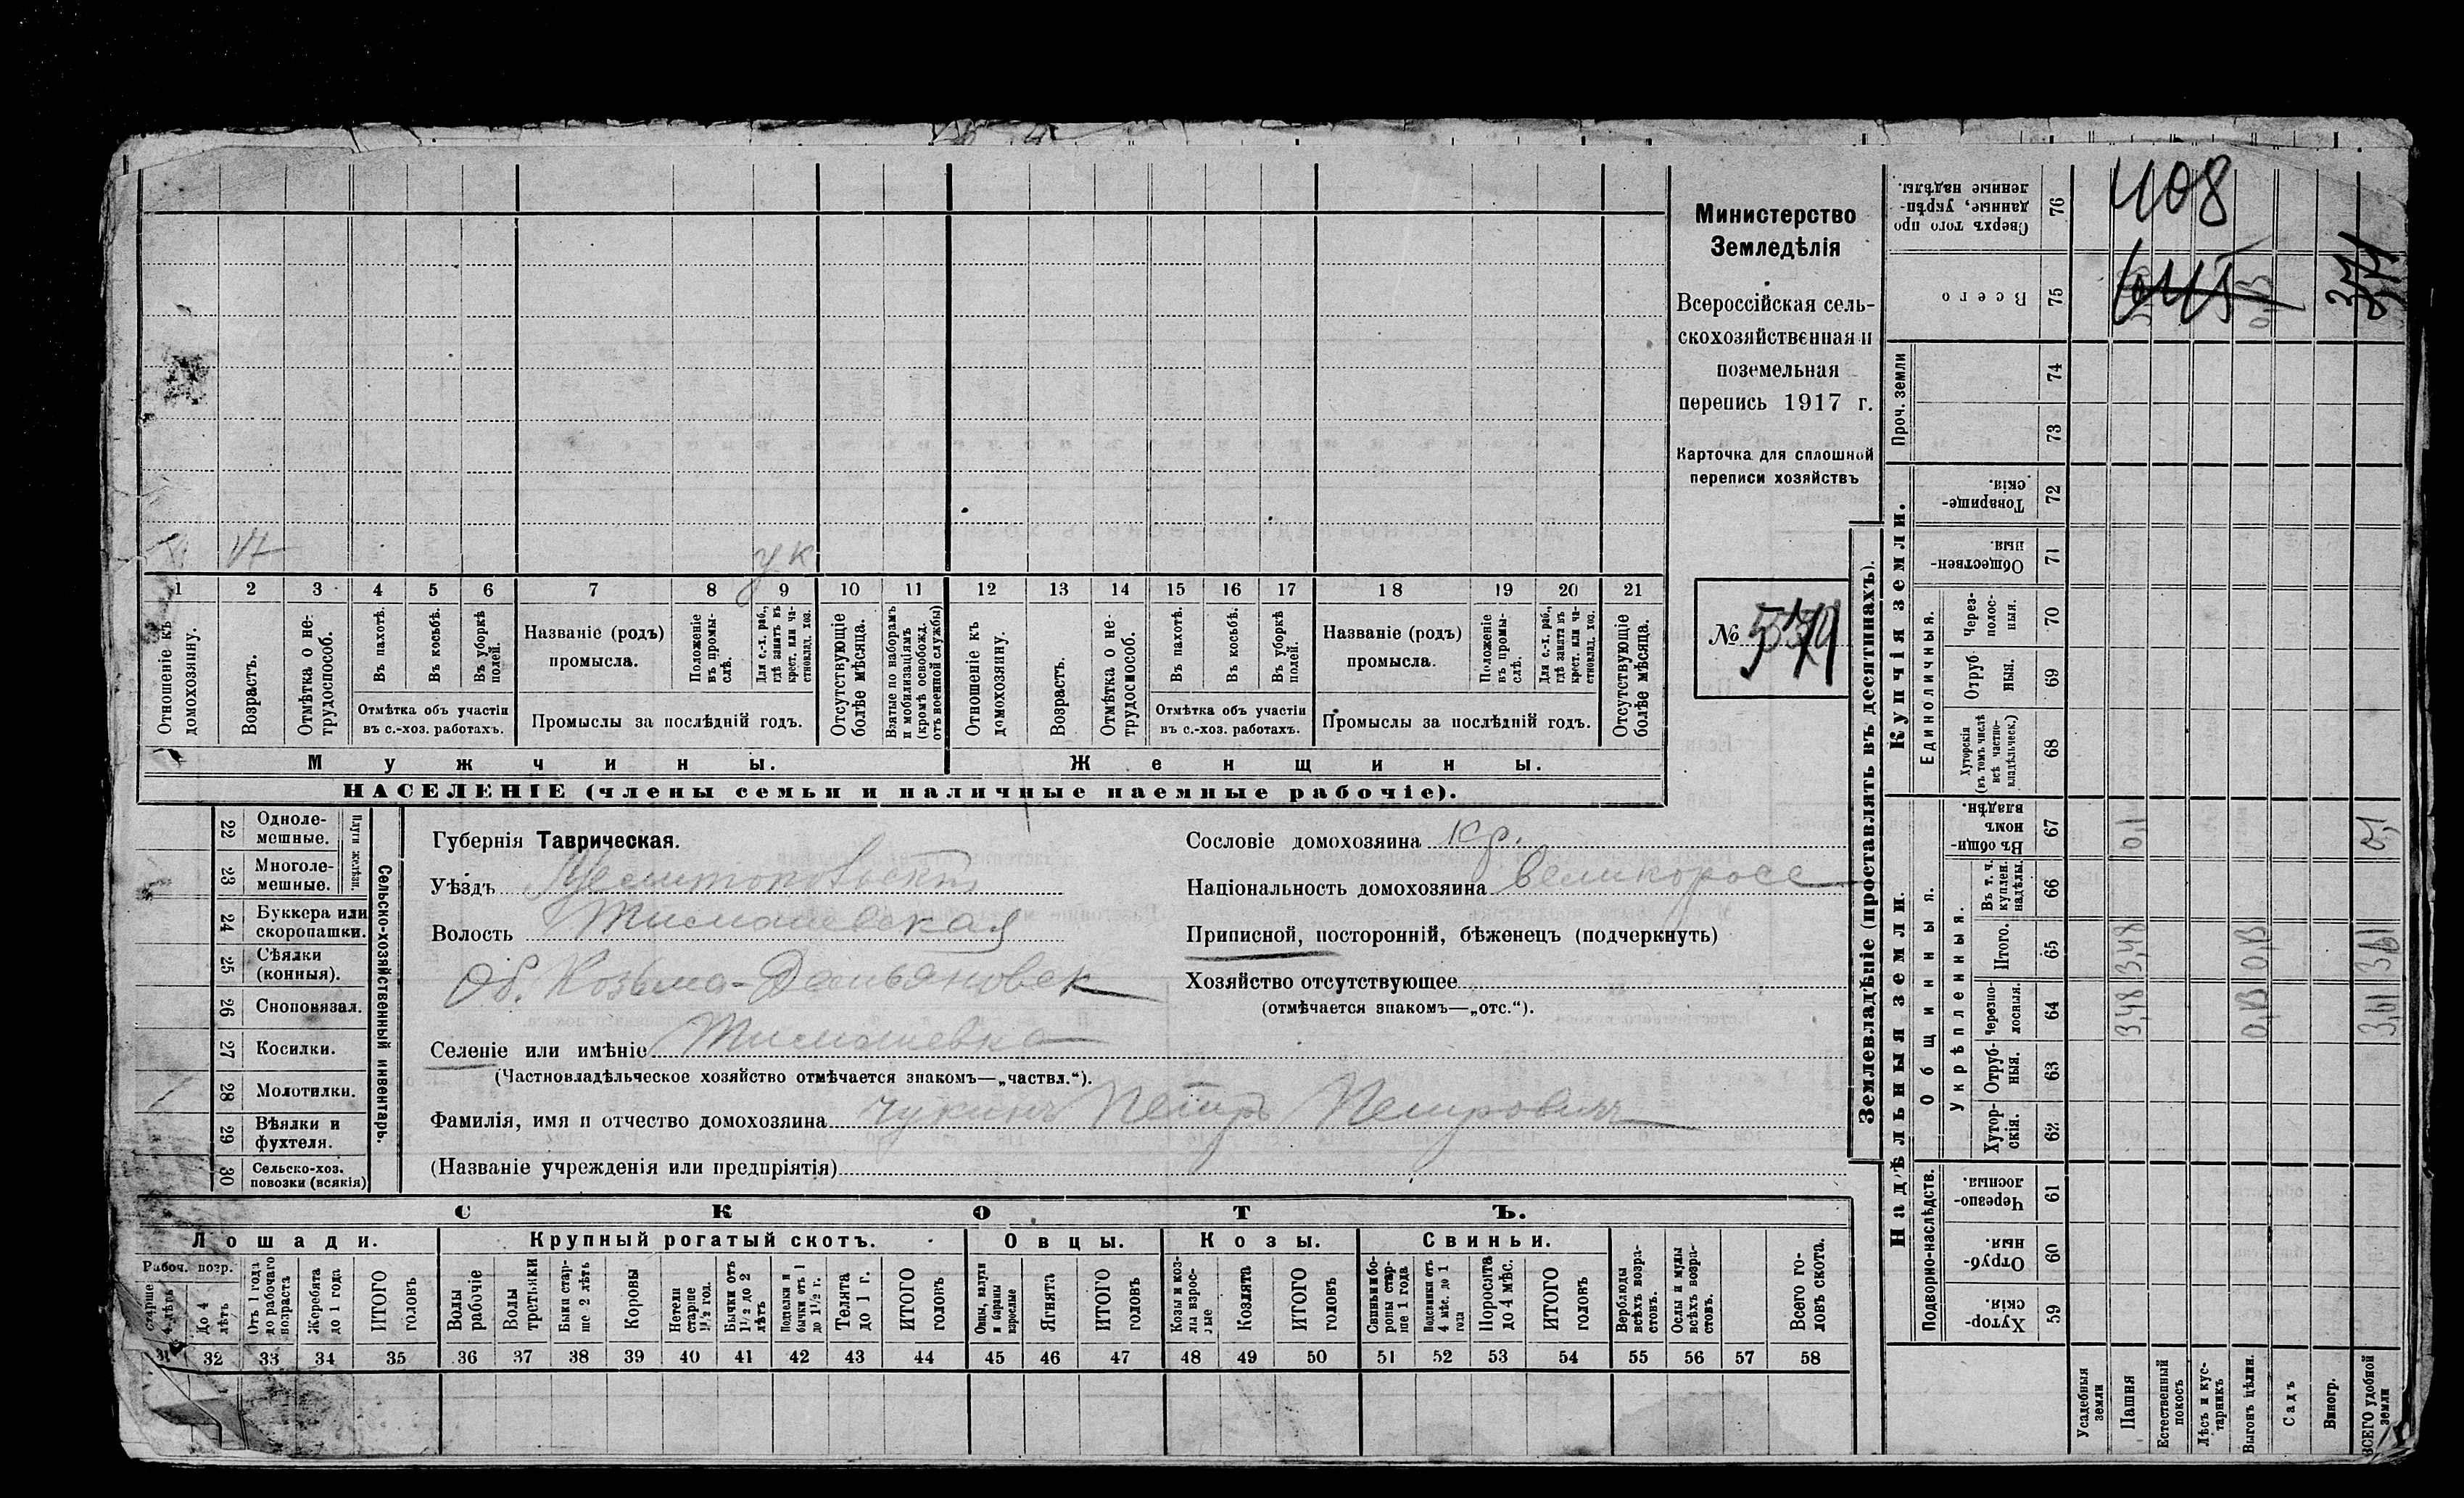 Министерство
Земледѣлія
Всероссійская сель-
скохозяйственная и
поземельная
перепись 1917 г.
Карточка для сплошной
переписи хозяйствъ
№
1 2 3 4 5 6 7 8 9 10 11 12 13 14 15 16 17 18 19 20 21
Отношеніе къ домохозяину.
Возрастъ.
Отмѣтка о не-трудоспособ.
Въ пахотѣ.
Въ косьбѣ.
Въ уборкѣ полей.
Отмѣтка объ участіи
въ с.-хоз. работахъ.
Названіе (родъ)
промысла.
Положеніе въ промы-слѣ.
Для с.-х. раб., гдѣ занятъ въ крест. или ча-стновлад. хоз.
Промыслы за послѣдній годъ.
Отсутствующіе болѣе мѣсяца.
Взятые по наборамъ и мобилизаціямъ (кромѣ освобожд. отъ военной службы)
Отношеніе къ домохозяину.
Возрастъ.
Отмѣтка о не-трудоспособ.
Въ пахотѣ.
Въ косьбѣ.
Въ уборкѣ полей.
Отмѣтка объ участіи
въ с.-хоз. работахъ.
Названіе (родъ)
промысла.
Положеніе въ промы-слѣ.
Для с.-х. раб., гдѣ занята въ крест. или ча-стновлад. хоз.
Промыслы за послѣдній годъ.
Отсутствующіе болѣе мѣсяца.
Мужчины.
Женщины.
НАСЕЛЕНІЕ (члены семьи и наличные наемные рабочіе).
22 Одноле-мешные.
23 Многоле-мешные.
Плуги желѣзн.
24 Буккера или скоропашки.
25 Сѣялки (конныя).
26 Сноповязал.
27 Косилки.
28 Молотилки.
29 Вѣялки и фухтеля.
30 Сельско-хоз. повозки (всякія)
Сельско-хозяйственный инвентарь.
Губернія Таврическая.
Уѣздъ Мелитопольскій
Волость Тимошевская
Об. Козьма-Демьяновск
Селеніе или имѣніе Тимошевка
(Частновладѣльческое хозяйство отмѣчается знакомъ—„частвл.“).
Фамилія, имя и отчество домохозяина Чукинъ Петръ Петровичъ
(Названіе учрежденія или предпріятія)
Сословіе домохозяина кр.
Національность домохозяина великоросс
Приписной, посторонній, бѣженецъ (подчеркнуть)
Хозяйство отсутствующее
(отмѣчается знакомъ—„отс.“).
СКОТЪ.
Лошади.
Крупный рогатый скотъ.
Овцы.
Козы.
Свиньи.
Рабоч. возр.
старше 4 лѣтъ
До 4 лѣтъ
Отъ 1 года до рабочаго возраста
Жеребята до 1 года
ИТОГО головъ
Волы рабочіе
Волы третьяки
Быки стар-ше 2 лѣтъ
Коровы
Нетели старше 1½ год.
Бычки отъ 1½ до 2 лѣтъ
Подтелки и бычки отъ 1 до 1½ г.
Телята до 1 г.
ИТОГО головъ
Овцы, валухи и бараны взрослые
Ягнята
ИТОГО головъ
Козы и коз-лы взрос-лые
Козлята
ИТОГО головъ
Свиньи и бо-ровы стар-ше 1 года
Подсвинки отъ 4 мѣс. до 1 года
Поросята до 4 мѣс.
ИТОГО головъ
Верблюды всѣхъ возра-стовъ.
Ослы и мулы всѣхъ возра-стовъ.
Всего го-ловъ скота.
31 32 33 34 35 36 37 38 39 40 41 42 43 44 45 46 47 48 49 50 51 52 53 54 55 56 57 58
Землевладѣніе (проставлять въ десятинахъ).
Надѣльныя земли.
Купчія земли.
Проч. земли
Подворно-наслѣдств.
Общинныя.
Укрѣпленныя.
Единоличныя.
59 Хутор-скія.
60 Отруб-ныя.
61 Черезпо-лосныя.
62 Хутор-скія.
63 Отруб-ныя.
64 Черезпо-лосныя. 3,48
65 Итого. 3,48
66 Въ т. ч. куплен. надѣлы.
67 Въ общи-номъ владѣн. 0,1
68 Хуторскія (въ томъ числѣ всѣ частно-владѣльческ.)
69 Отруб-ныя.
70 Через-полос-ныя.
71 Обществен-ныя.
72 Товарище-скія.
73
74
75 Всего
76 Сверхъ того про-данные, укрѣп-ленные надѣлы.
408
Усадебныя земли
Пашня
Естественный покосъ
Лѣсъ и кус-тарникъ
Выгонъ цѣлин.
Садъ
Виногр.
ВСЕГО удобной земли